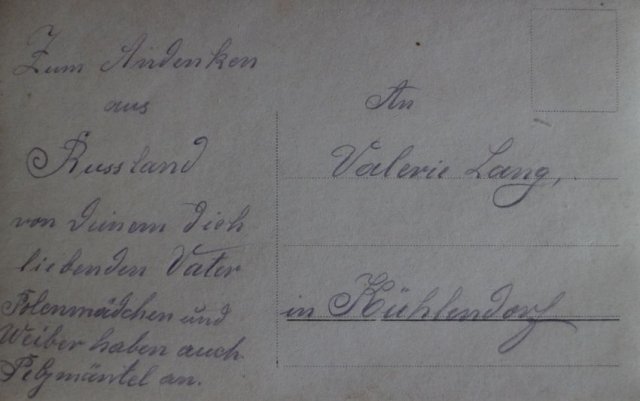 Zum Andenken
aus
Russland
von deinem dich
liebenden Vater
Polenmädchen und
Weiber haben auch
Pelzmäntel an.
An
Valerie Lang,
in Kühlendorf